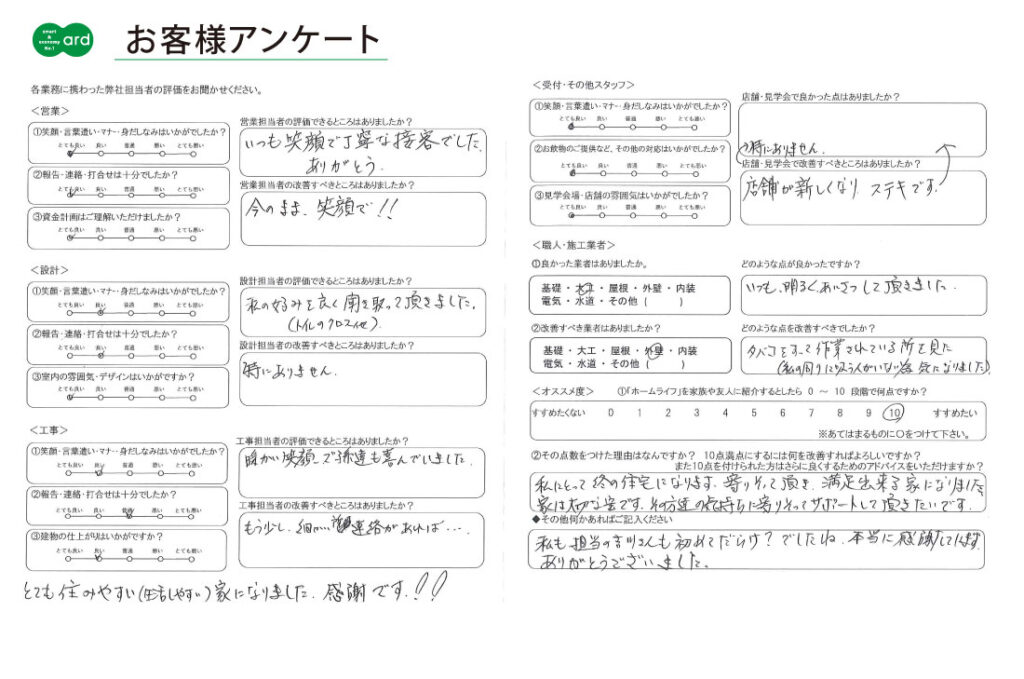 smart
&
economy
No.1
ard
お客様アンケート
各業務に携わった弊社担当者の評価をお聞かせください。
＜営業＞
①笑顔・言葉遣い・マナー・身だしなみはいかがでしたか？
とても良い 良い 普通 悪い とても悪い
②報告・連絡・打合せは十分でしたか？
とても良い 良い 普通 悪い とても悪い
③資金計画はご理解いただけましたか？
とても良い 良い 普通 悪い とても悪い
営業担当者の評価できるところはありましたか？
いつも笑顔で丁寧な接客でした。
ありがとう。
営業担当者の改善すべきところはありましたか？
今のまま、笑顔で!!
＜設計＞
①笑顔・言葉遣い・マナー・身だしなみはいかがでしたか？
とても良い 良い 普通 悪い とても悪い
②報告・連絡・打合せは十分でしたか？
とても良い 良い 普通 悪い とても悪い
③室内の雰囲気・デザインはいかがですか？
とても良い 良い 普通 悪い とても悪い
設計担当者の評価できるところはありましたか？
私の好みを良く聞き取って頂きました。
(トイレのクロス他)
設計担当者の改善すべきところはありましたか？
特にありません。
＜工事＞
①笑顔・言葉遣い・マナー・身だしなみはいかがでしたか？
とても良い 良い 普通 悪い とても悪い
②報告・連絡・打合せは十分でしたか？
とても良い 良い 普通 悪い とても悪い
③建物の仕上がりはいかがですか？
とても良い 良い 普通 悪い とても悪い
工事担当者の評価できるところはありましたか？
暖かい笑顔で孫達も喜んでいました。
工事担当者の改善すべきところはありましたか？
もう少し、細かい連絡があれば・・・
とても住みやすい(生活しやすい)家になりました。感謝です!!
＜受付・その他スタッフ＞
①笑顔・言葉遣い・マナー・身だしなみはいかがでしたか？
とても良い 良い 普通 悪い とても悪い
②お飲物のご提供など、その他の対応はいかがでしたか？
とても良い 良い 普通 悪い とても悪い
③見学会場・店舗の雰囲気はいかがでしたか？
とても良い 良い 普通 悪い とても悪い
店舗・見学会で良かった点はありましたか？
特にありません。
店舗・見学会で改善すべきところはありましたか？
店舗が新しくなり ステキです。
＜職人・施工業者＞
①良かった業者はありましたか。
基礎・大工・屋根・外壁・内装
電気・水道・その他（ ）
どのような点が良かったですか？
いつも、明るくあいさつして頂きました。
②改善すべき業者はありましたか？
基礎・大工・屋根・外壁・内装
電気・水道・その他（ ）
どのような点を改善すべきでしたか？
タバコをすって作業されている所を見た
(私の周りに吸う人がいない為気になりました)
＜オススメ度＞ ①「ホームライフ」を家族や友人に紹介するとしたら 0 ～ 10 段階で何点ですか？
すすめたくない 0 1 2 3 4 5 6 7 8 9 10 すすめたい
※あてはまるものに○をつけて下さい。
②その点数をつけた理由はなんですか？ 10点満点にするには何を改善すればよろしいですか？
また10点を付けられた方はさらに良くするためのアドバイスをいただけますか？
私にとって終の住宅になります。寄りそって頂き、満足出来る家になりました。
家は大切な宝です。その方達の気持ちに寄りそってサポートして頂きたいです。
◆その他何かあればご記入ください
私も、担当の さんも初めてだらけ？でしたね。本当に感謝してます。
ありがとうございました。